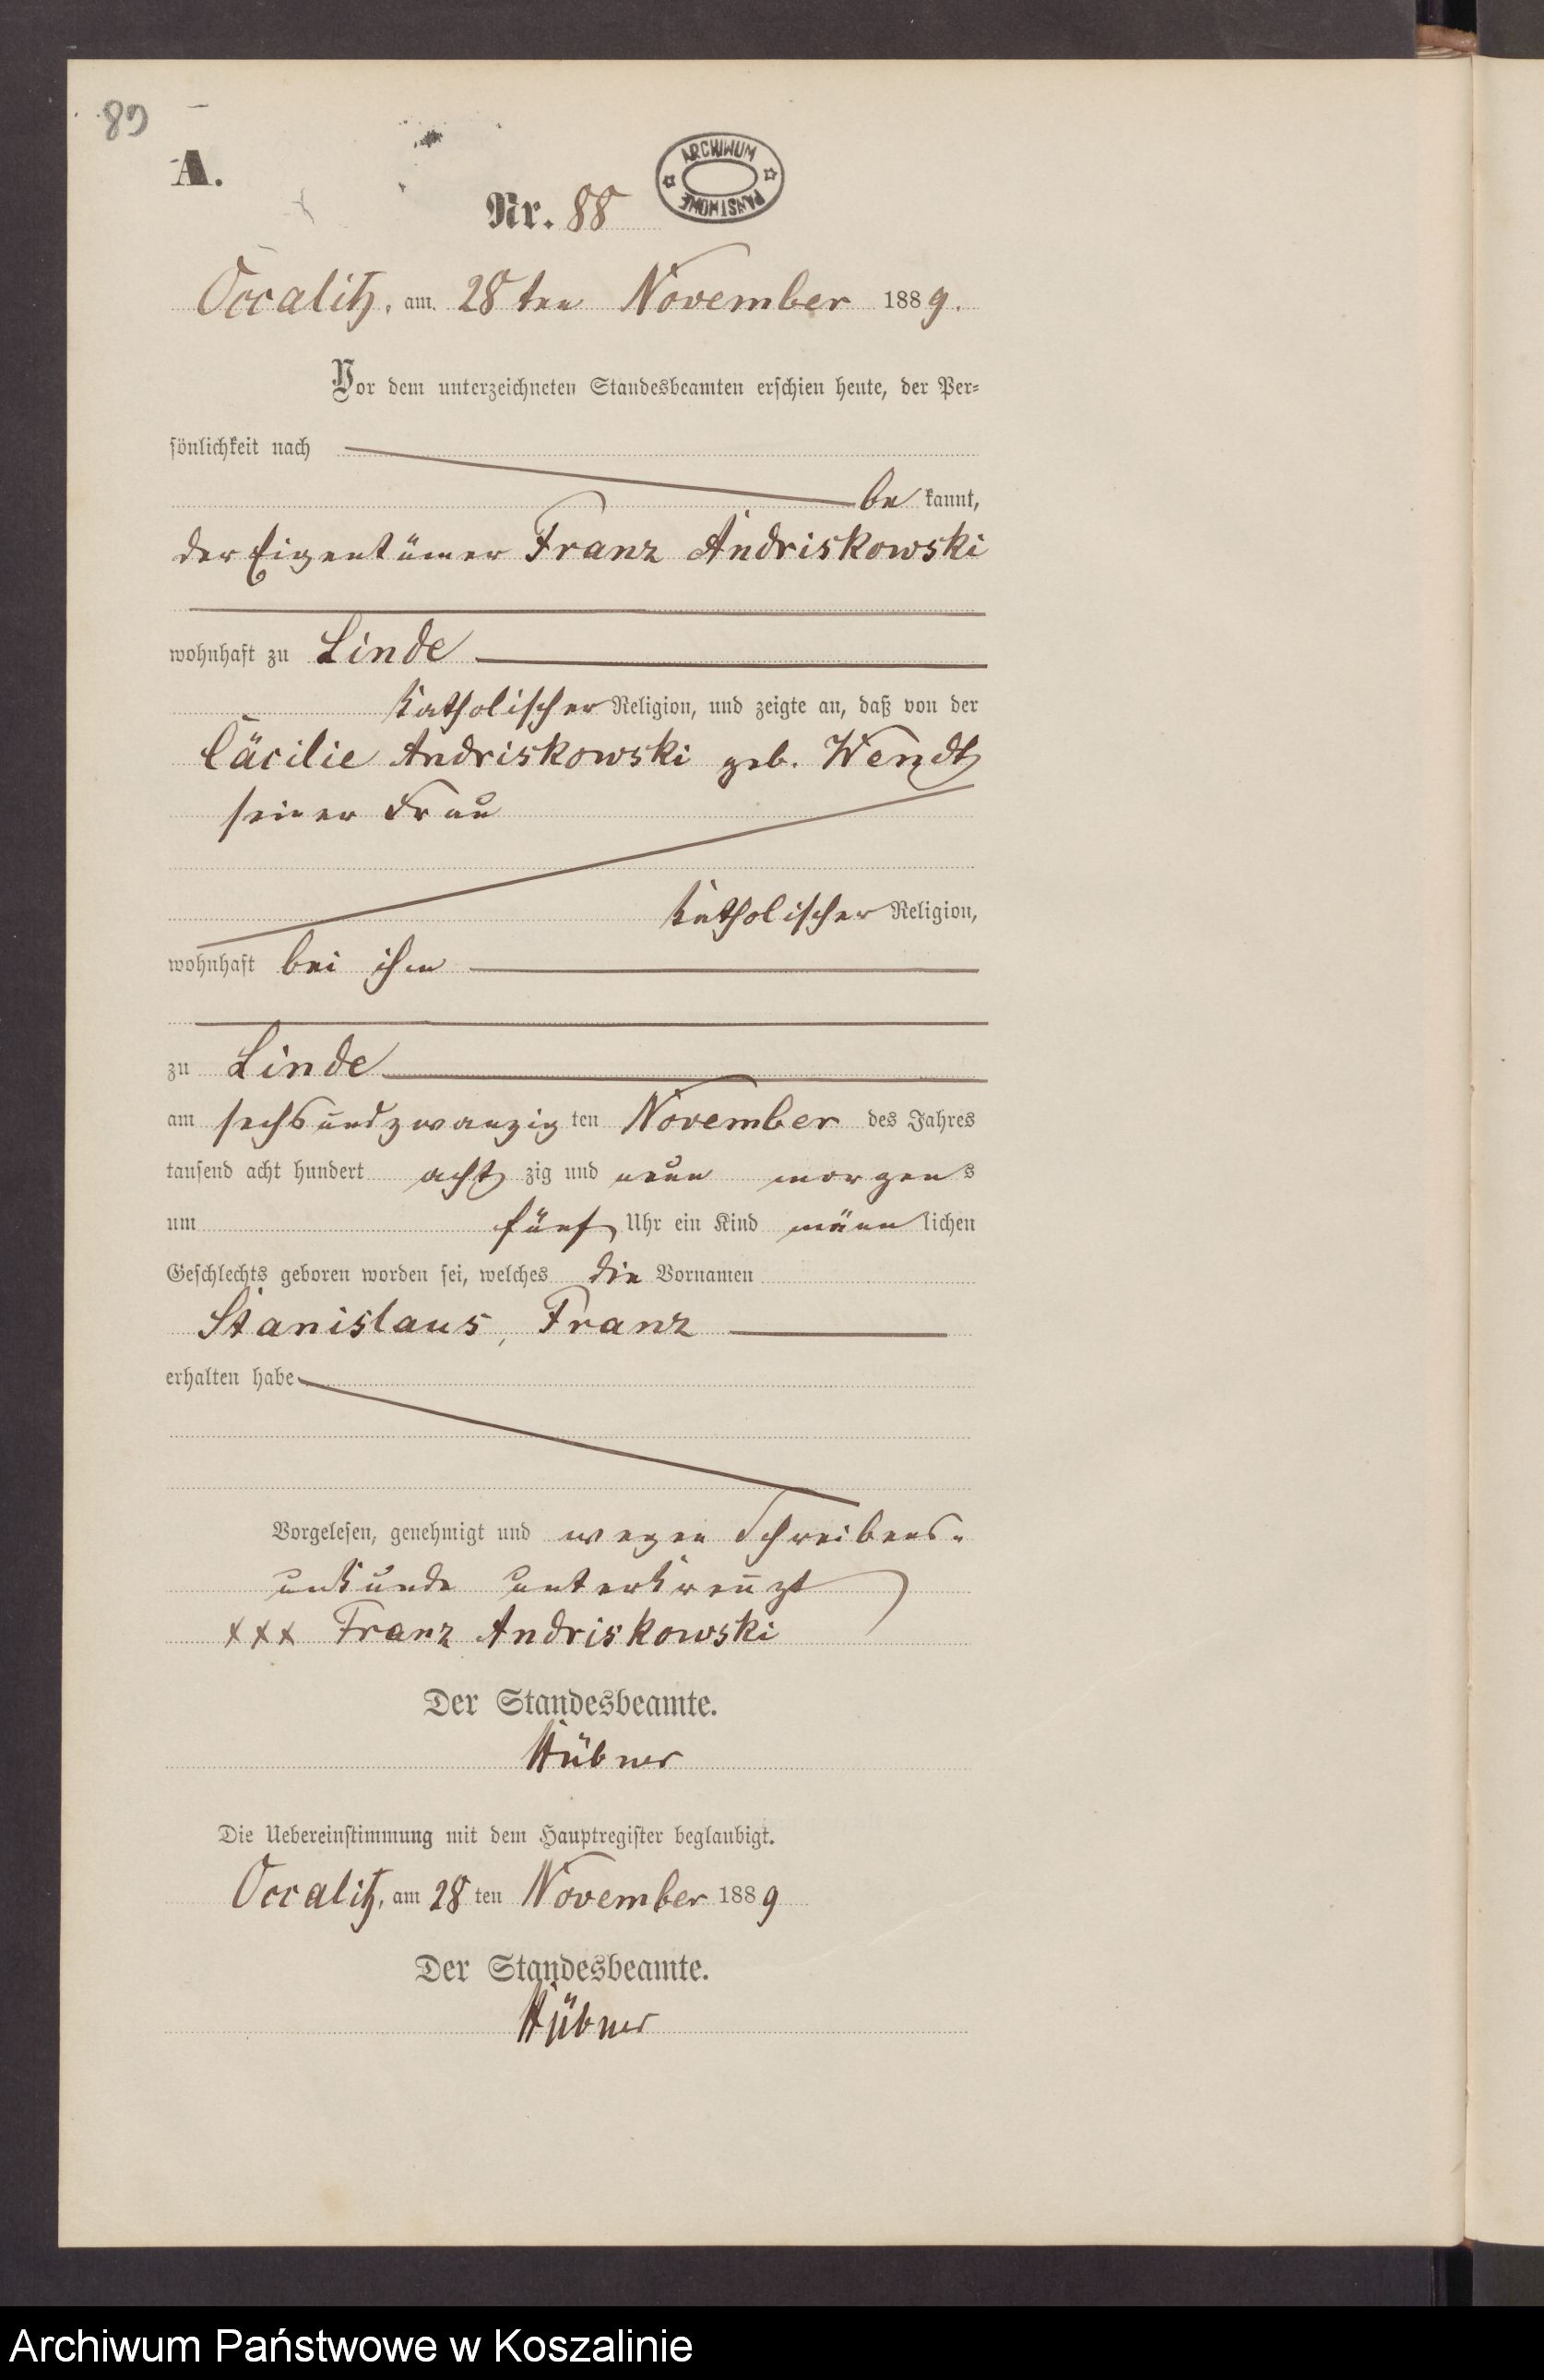 89
A.
ARCHIWUM PAŃSTWOWE
Nr. 88
Occalitz, am 28 ten November 1889.
Vor dem unterzeichneten Standesbeamten erschien heute, der Per-
sönlichkeit nach
be kannt,
der Eigentümer Franz Andriskowski
wohnhaft zu Linde
katholischer Religion, und zeigte an, daß von der
Cäcilie Andriskowski geb. Wendt
seiner Frau
katholischer Religion,
wohnhaft bei ihm
zu Linde
am sechsundzwanzig ten November des Jahres
tausend acht hundert acht zig und neun morgens
um fünf Uhr ein Kind männlichen
Geschlechts geboren worden sei, welches die Vornamen
Stanislaus, Franz
erhalten habe
Vorgelesen, genehmigt und wegen Schreibens-
unkunde unterkreuzt
xxx Franz Andriskowski
Der Standesbeamte.
Hübner
Die Uebereinstimmung mit dem Hauptregister beglaubigt.
Occalitz, am 28 ten November 1889
Der Standesbeamte.
Hübner
Archiwum Państwowe w Koszalinie